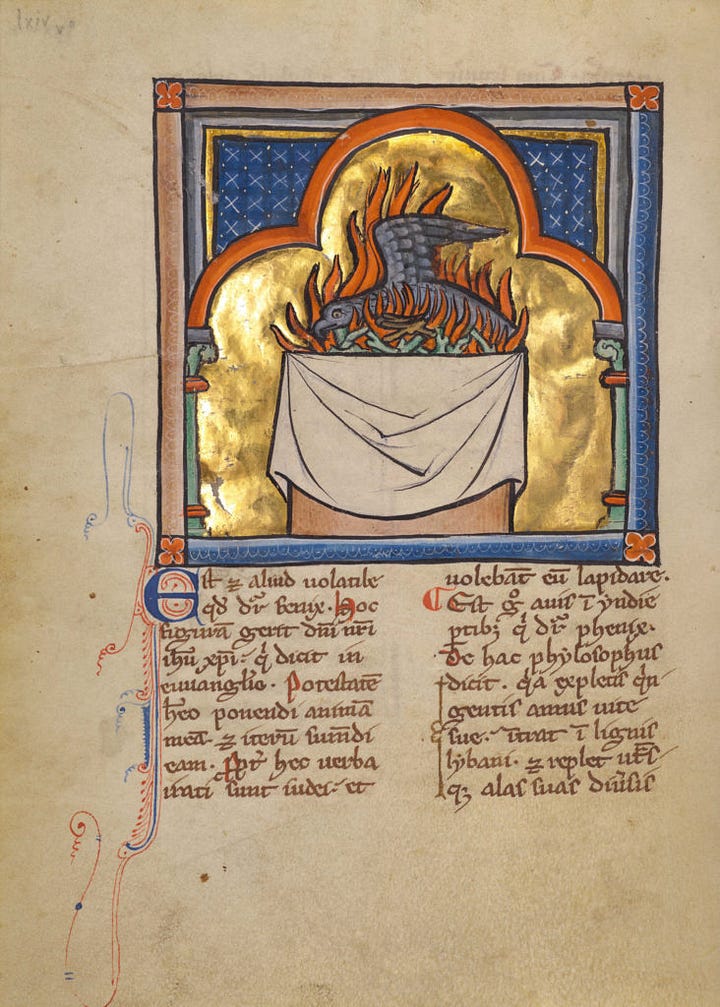 lxiv vº
Est ⁊ aliud uolatile
qd̄ dr̄ fenix. Hoc
figurā gerit dn̄i nr̄i
ihū xp̄i. q̄ dicit in
euuanglio. Potestatē
h̄eo ponendi animā
meā. ⁊ iterū sum̄di
eam. Pp̄t hec uerba
irati sunt iudei. et
uolebāt eū lapidare.
Est g̊ auis ī yndie
ptib; q̄ dr̄ phenix.
De hac phylosophus
dicit. q̄a expletis q̄n
gentis annis uite
sue. īt̄rat ī lignis
lybani. ⁊ replet ut̄s
q; alas suas diũsis